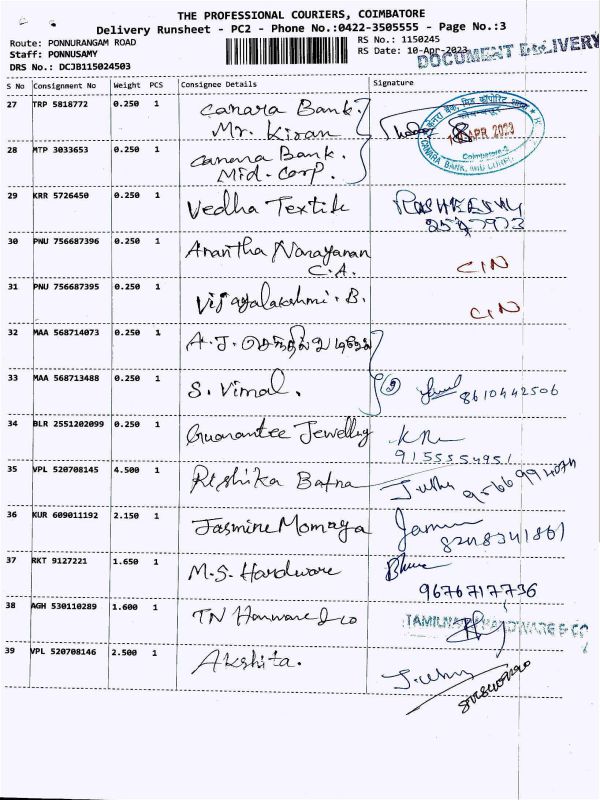 THE PROFESSIONAL COURIERS, COIMBATORE
Delivery Runsheet - PC2 - Phone No.:0422-3505555 - Page No.:3
Route: PONNURANGAM ROAD
RS No.: 1150245
Staff: PONNUSAMY
RS Date: 10-Apr-2023
DOCUMENT DELIVERY
DRS No.: DCJB115024503
S No Consignment No Weight PCS Consignee Details Signature
27 TRP 5818772 0.250 1 Canara Bank.
Mr. Kiran
APR 2023
Coimbatore
CANARA BANK, MID CORP.
28 MTP 3033653 0.250 1 Canara Bank.
Mid-Corp.
29 KRR 5726450 0.250 1 Vedha Textile
30 PNU 756687396 0.250 1 Anantha Narayanan
C.A. CIN
31 PNU 756687395 0.250 1 Vijayalakshmi. B. CIN
32 MAA 568714073 0.250 1 A.J.
33 MAA 568713488 0.250 1 S. Vimal.
8610442506
34 BLR 2551202099 0.250 1 Guarantee Jewellery
9155554951
35 VPL 520708145 4.500 1 Rishika Bafna
36 KUR 609011192 2.150 1 Jasmine Momaya
37 RKT 9127221 1.650 1 M.S. Hardware
9676717736
38 AGH 530110289 1.600 1 TN Hanware & co
TAMILNADU HARDWARE & CO
39 VPL 520708146 2.500 1 Akshita.